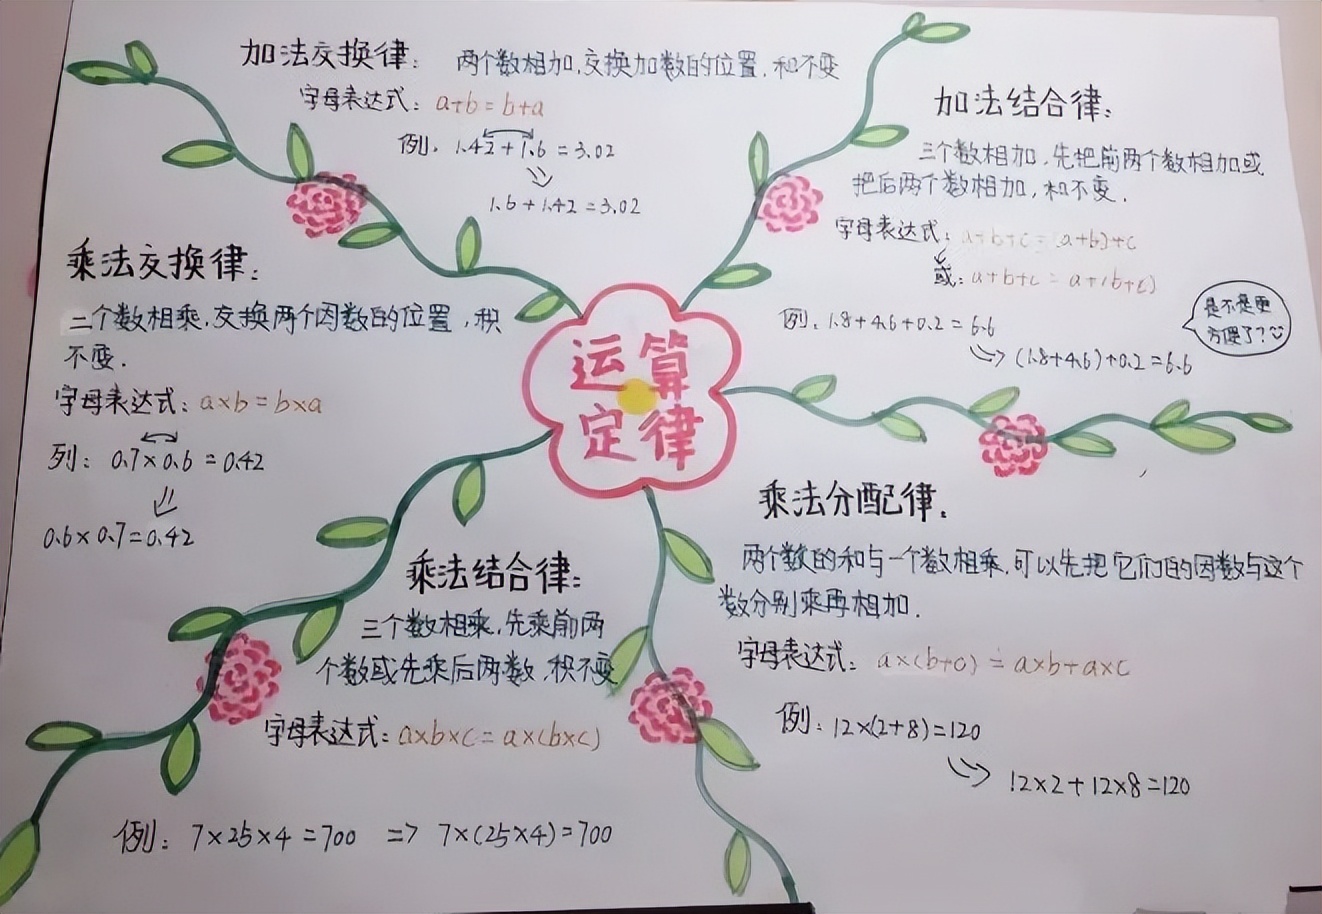 加法交换律：两个数相加，交换加数的位置，和不变
字母表达式：a+b=b+a
例：1.42+1.6=3.02
1.6+1.42=3.02
加法结合律：
三个数相加，先把前两个数相加或
把后两个数相加，和不变.
字母表达式：a+b+c=(a+b)+c
或：a+b+c=a+(b+c)
例：1.8+4.6+0.2=6.6
(1.8+4.6)+0.2=6.6
是不是更
方便了？
乘法交换律：
二个数相乘，交换两个因数的位置，积
不变.
字母表达式：a×b=b×a
列：0.7×0.6=0.42
0.6×0.7=0.42
运算
定律
乘法分配律.
两个数的和与一个数相乘，可以先把它们的因数与这个
数分别乘再相加.
字母表达式：a×(b+c)=a×b+a×c
例：12×(2+8)=120
12×2+12×8=120
乘法结合律：
三个数相乘，先乘前两
个数或先乘后两数，积不变
字母表达式：a×b×c=a×(b×c)
例：7×25×4=700 => 7×(25×4)=700